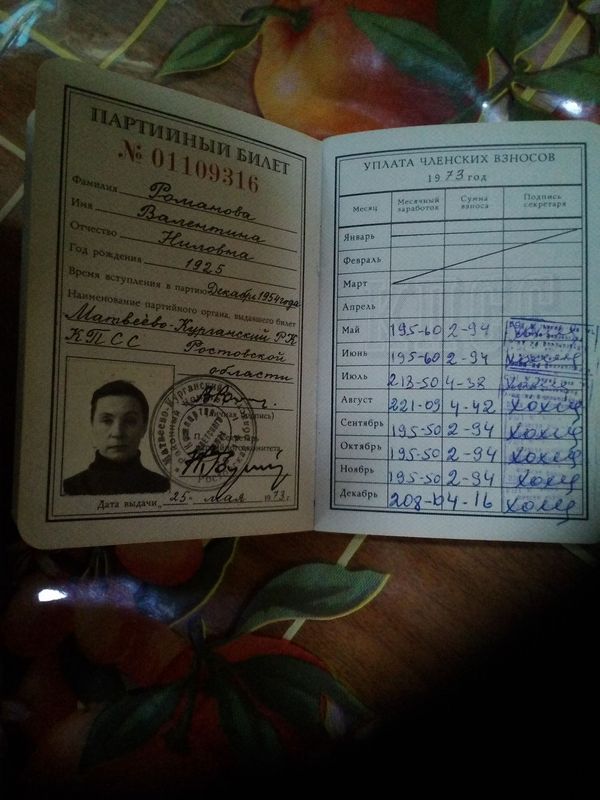 ПАРТИЙНЫЙ БИЛЕТ
№ 01109316
Фамилия Романова
Имя Валентина
Отчество Ниловна
Год рождения 1925
Время вступления в партию Декабрь 1954 года
Наименование партийного органа, выдавшего билет
Матвеево-Курганский РК
КПСС Ростовской
области
(личная подпись)
Дата выдачи „25" мая 1973 г.
УПЛАТА ЧЛЕНСКИХ ВЗНОСОВ
1973 год
Месяц Месячный заработок Сумма взноса Подпись секретаря
Январь
Февраль
Март
Апрель
Май 195-60 2-94
Июнь 195-60 2-94
Июль 213-50 4-38
Август 221-09 4-42
Сентябрь 195-50 2-94
Октябрь 195-50 2-94
Ноябрь 195-50 2-94
Декабрь 208-04-16